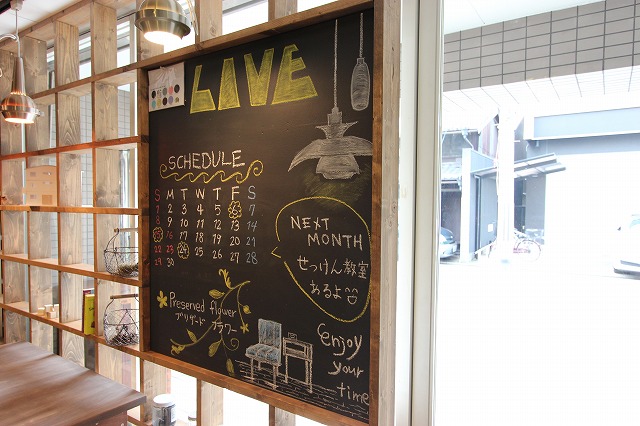 LIVE
SCHEDULE
S M T W T F S
1 2 3 4 5 6 7
8 9 10 11 12 13 14
15 16 17 18 19 20 21
22 23 24 25 26 27 28
29 30
NEXT
MONTH
せっけん教室
あるよ
Preserved flower
プリザーブド フラワー
enjoy
your
time